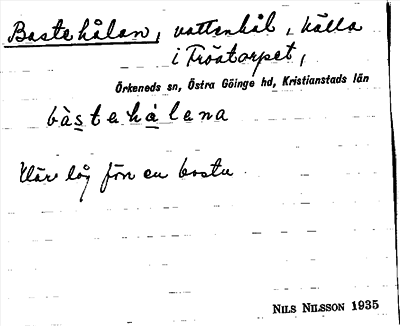 Bastehålan, vattenhål, källa
i Tröatorpet,
Örkeneds sn, Östra Göinge hd, Kristianstads län
bàstehålena
Där låg förr en bastu
NILS NILSSON 1935